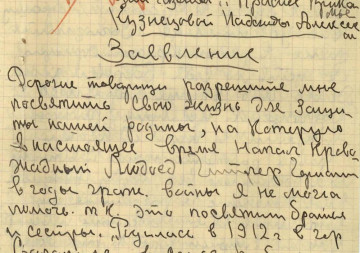 Кузнецовой Надежды Алексе
Заявление
Дорогие товарищи разрешите мне
посвятить свою жизнь для защи
ты нашей родины, на которую
в настоящее время напал крова
жадный людоед Гитлер
в годы граж. войны я не могла
помочь. т.к. это посвятили братья
и сестры. Родилась в 1912 г в гор